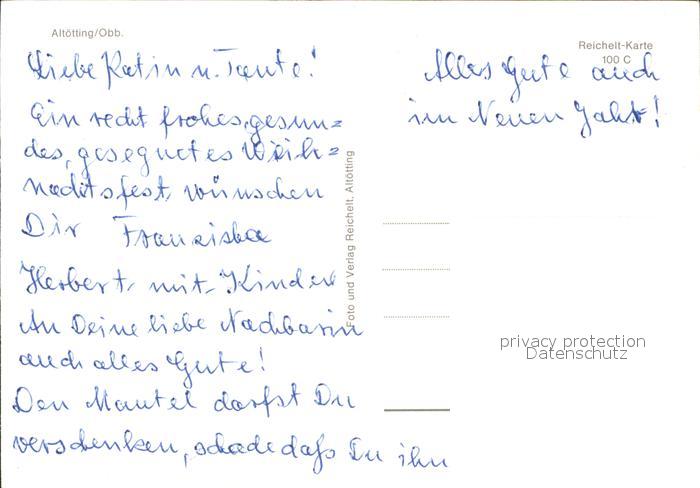 Altötting/Obb.
Liebe Patin u. Tante!
Ein recht frohes, gesun=
des, gesegnetes Weih=
nachtsfest, wünschen
Dir Franziska
Herbert, mit, Kinder
An Deine liebe Nachbarin
auch alles Gute!
Den Mantel darfst Du
verschenken, schade daſs Du ihn
Foto und Verlag Reichelt, Altötting
Reichelt-Karte
100 C
Alles Gute auch
im Neuen Jahr!
privacy protection
Datenschutz